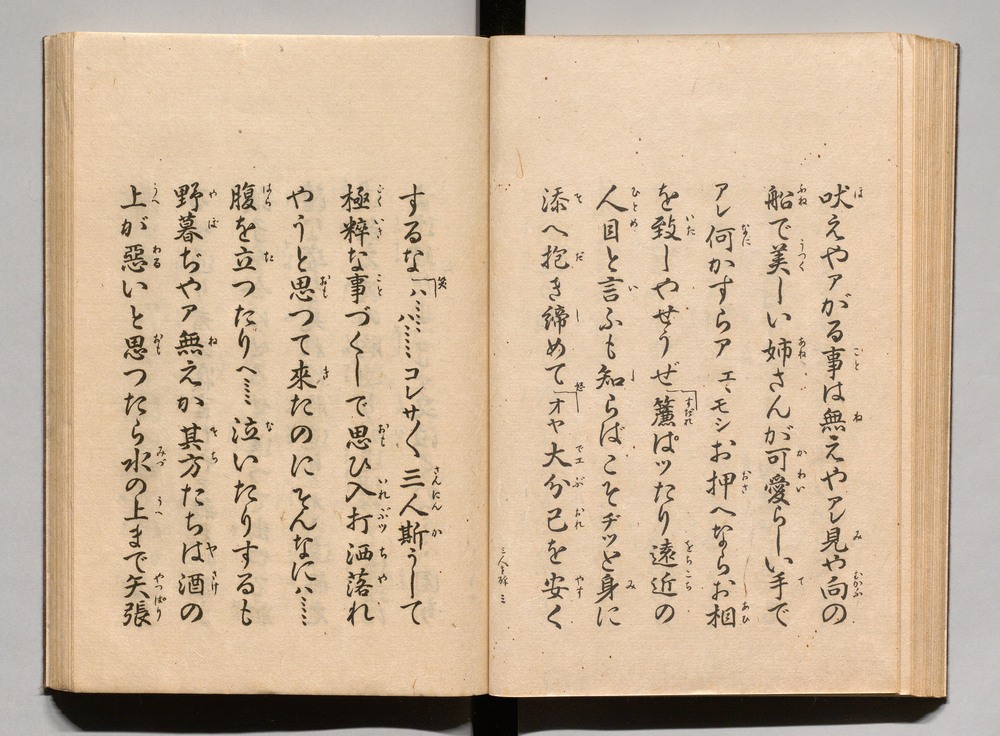 吠えやァがる事は無えやアレ見や向の
船で美しい姉さんが可愛らしい手で
アレ何かすらア エヽモシお押へならお相
を致しやせうぜ簾ぱッたり遠近の
人目と言ふも知らばこそヂッと身に
添へ抱き締めてオヤ大分己を安く
三人生酔 三
するなハヽヽヽハヽヽヽコレサ〳〵三人斯うして
極粋な事づくしで思ひ入打洒落れ
やうと思つて來たのにそんなにハヽヽヽ
腹を立つたりへヽヽ泣いたりするも
野暮ぢやア無えか其方たちは酒の
上が惡いと思つたら水の上まで矢張